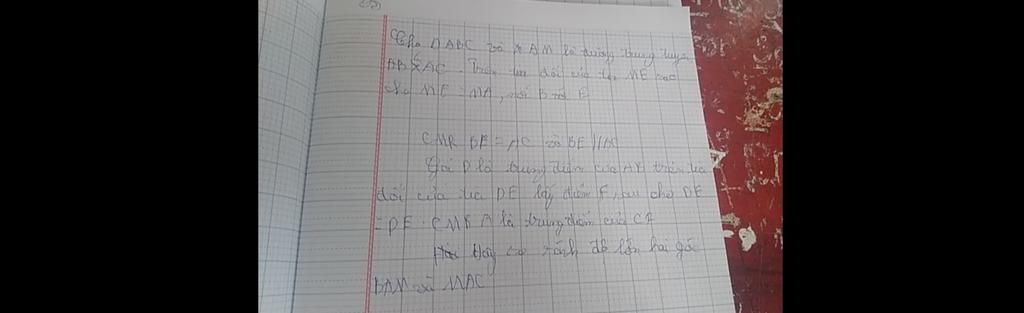 Cho ΔABC và AM là đường trung tuyến
AC. Trên tia đối của tia ME sao
cho ME = MA, nối B với E
CMR BE = AC và BE // AC
Gọi D là trung điểm của AB trên tia
đối của tia DE lấy điểm F sao cho DE
= DF. CMR A là trung điểm của CF
Hãy so sánh độ lớn hai góc
BAM và MAC